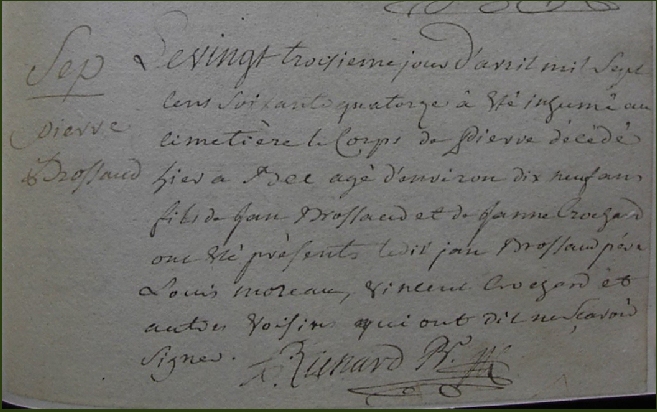 Sep
Pierre
Brossaud
Le vingt troisieme jour d'avril mil Sept
cens Soixante quatorze à été inhumé au
cimetière le Corps de Pierre décédé
hier a agé d'environ dix neuf ans
fils de Jan Brossaud et de Janne Crochard
ont été présents ledit jan Brossaud père
Louis moreau, Vincent et
autres Voisins qui ont dit ne sçavoir
Signer.